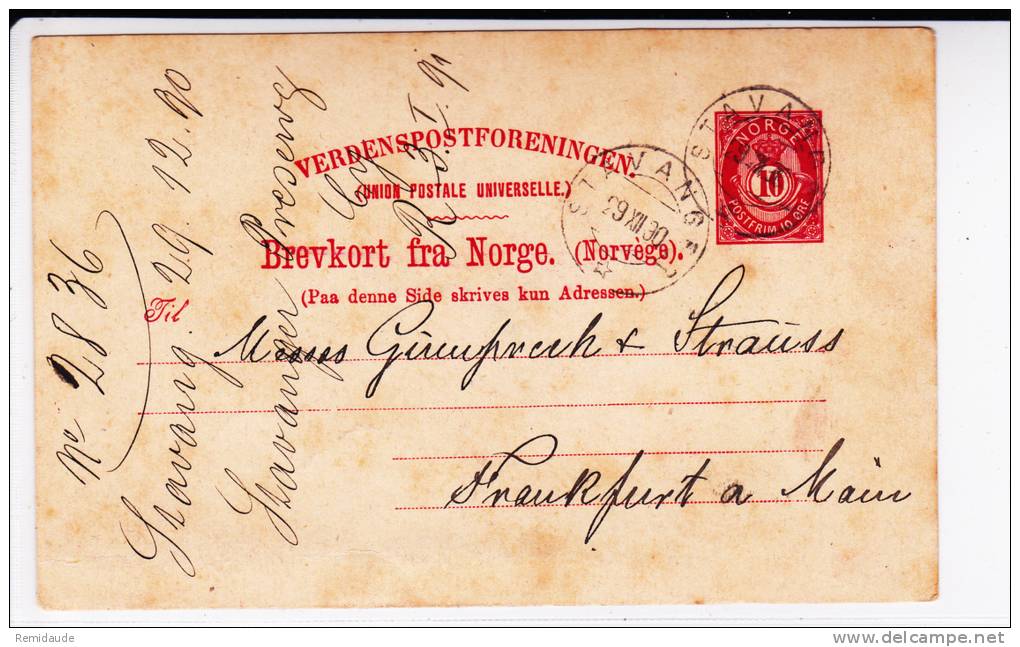 VERDENSPOSTFORENINGEN.
(UNION POSTALE UNIVERSELLE.)
Brevkort fra Norge. (Norvège).
(Paa denne Side skrives kun Adressen.)
Til
Messrs Gumprech & Strauss
Frankfurt a Main
NORGE
10
POSTFRIM. 10 ØRE
STAVANG
STAVANG
No 2836
Stavang 29.12.90
Stavanger Preserving
Co
R 3. I. 91
Remidaude
www.delcampe.net